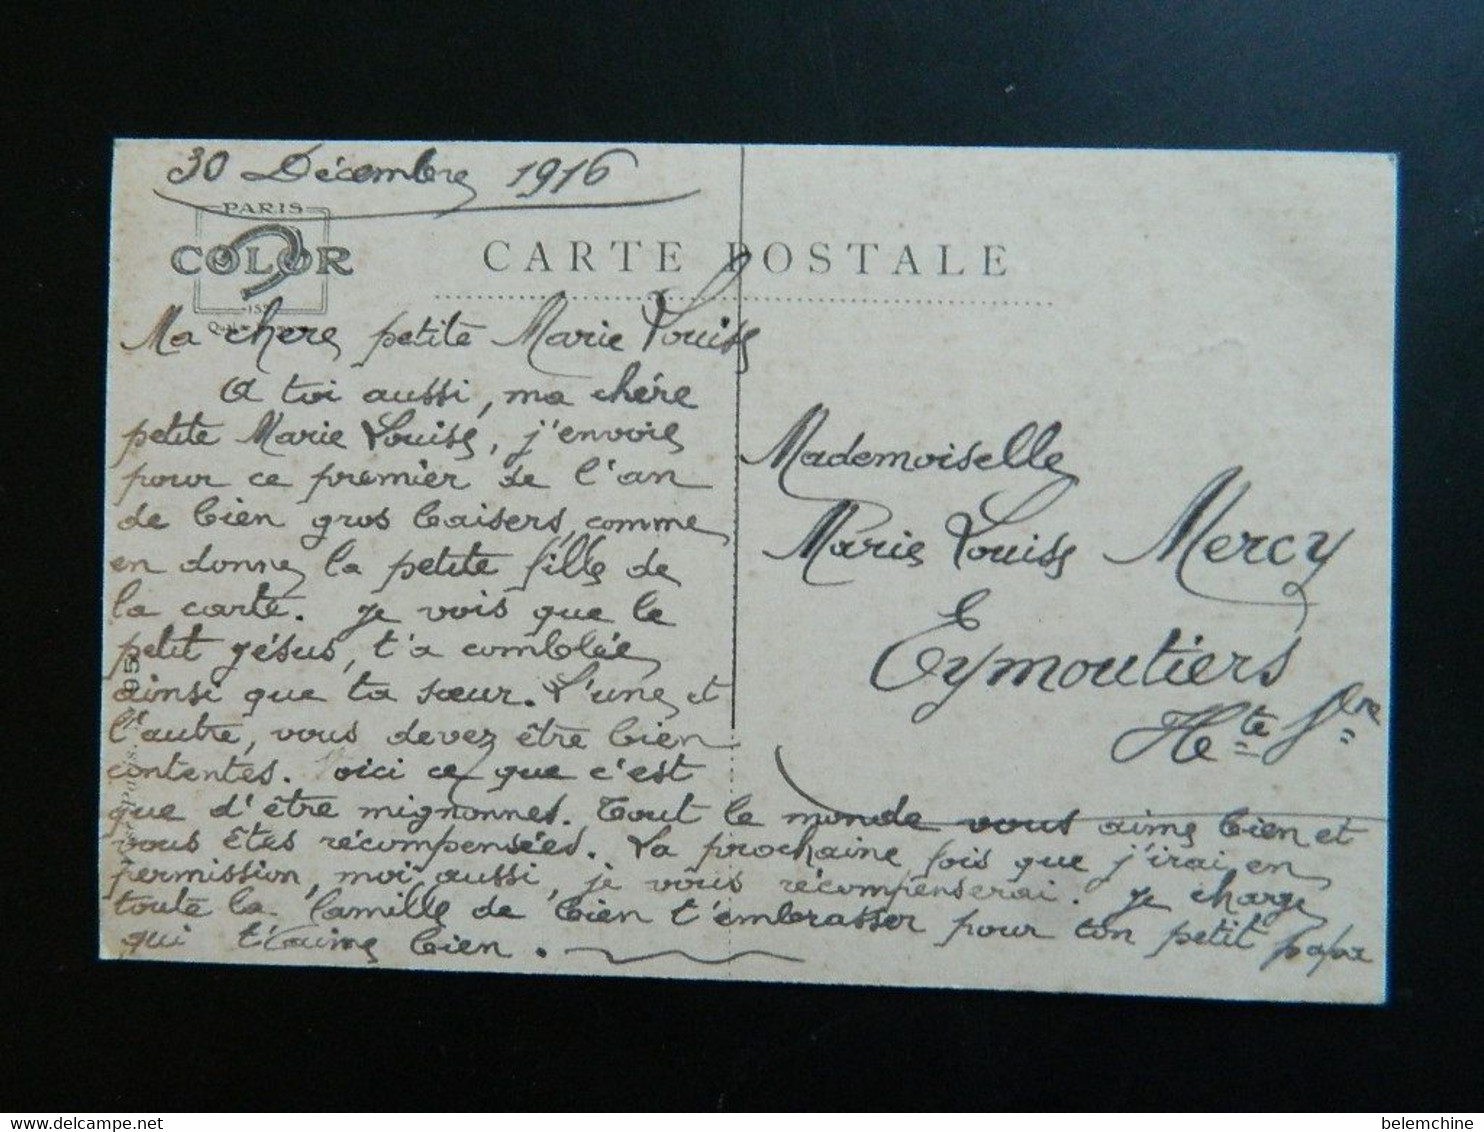 30 Décembre 1916
PARIS
COLOR
CARTE POSTALE
Ma chere petite Marie Louise
A toi aussi, ma chére
petite Marie Louise, j'envoie
pour ce premier de l'an
de bien gros baisers, comme
en donne la petite fille de
la carte. Je vois que le
petit Jésus, t'a comblée
ainsi que ta sœur. L'une et
l'autre, vous devez être bien
contentes. Voici ce que c'est
que d'être mignonnes. Tout le monde vous aime bien et
vous êtes récompensées. La prochaine fois que j'irai en
permission, moi aussi, je vous récompenserai. Je charge
toute la famille de bien t'embrasser pour ton petit papa
qui t'aime bien.
Mademoiselle
Marie Louise Mercy
Eymoutiers
Hte Vne
delcampe.net
belemchine